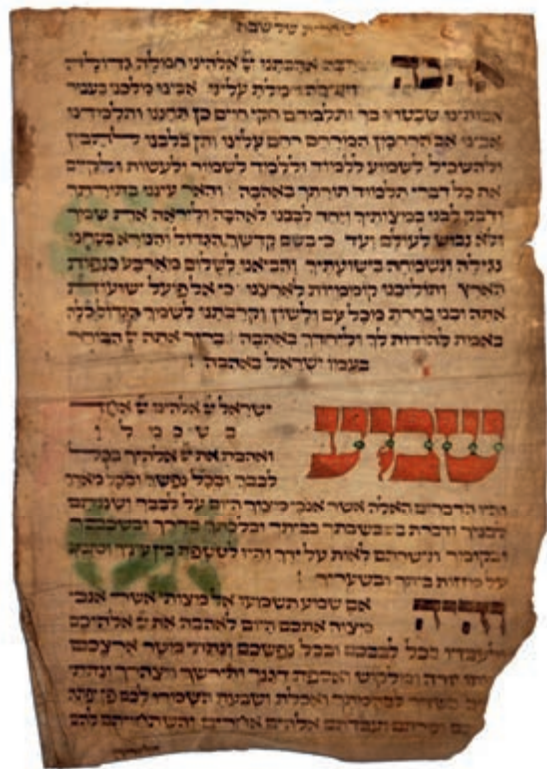 שחרית של שבת
אהבה רבה אהבתנו יי אלהינו חמלה גדולה
ויתירה חמלת עלינו אבינו מלכנו בעבור
אבותינו שבטחו בך ותלמדם חקי חיים כן תחננו ותלמדינו
אבינו אב הרחמן המרחם רחם עלינו ותן בלבנו להבין
ולהשכיל לשמוע ללמוד וללמד לשמור ולעשות ולקיים
את כל דברי תלמוד תורתך באהבה והאר עינינו בתורתך
ודבק לבנו במצותיך ויחד לבבנו לאהבה וליראה את שמך
ולא נבוש לעולם ועד כי בשם קדשך הגדול והנורא בטחנו
נגילה ונשמחה בישועתיך והביאנו לשלום מארבע כנפות
הארץ ותוליכנו קוממיות לארצנו כי אל פועל ישועות
אתה ובנו בחרת מכל עם ולשון וקרבתנו לשמך הגדול סלה
באמת להודות לך וליחדך באהבה ברוך אתה יי הבוחר
בעמו ישראל באהבה
שמע ישראל יי אלהינו יי אחד
ב ש כ מ ל ו
ואהבת את יי אלהיך בכל
לבבך ובכל נפשך ובכל מאדך
והיו הדברים האלה אשר אנכי מצוך היום על לבבך ושננתם
לבניך ודברת בם בשבתך בביתך ובלכתך בדרך ובשכבך
ובקומיך וקשרתם לאות על ידך והיו לטטפת בין עיניך וכתבתם
על מזוזות ביתך ובשעריך
והיה אם שמוע תשמעו אל מצותי אשר אנכי
מצוה אתכם היום לאהבה את יי אלהיכם
ולעבדו בכל לבבכם ובכל נפשכם ונתתי מטר ארצכם
יורה ומלקוש ואספת דגנך ותירשך ויצהרך ונתתי
בשדך לבהמתך ואכלת ושבעת השמרו לכם פן יפתה
וסרתם ועבדתם אלהים אחרים והשתחויתם להם